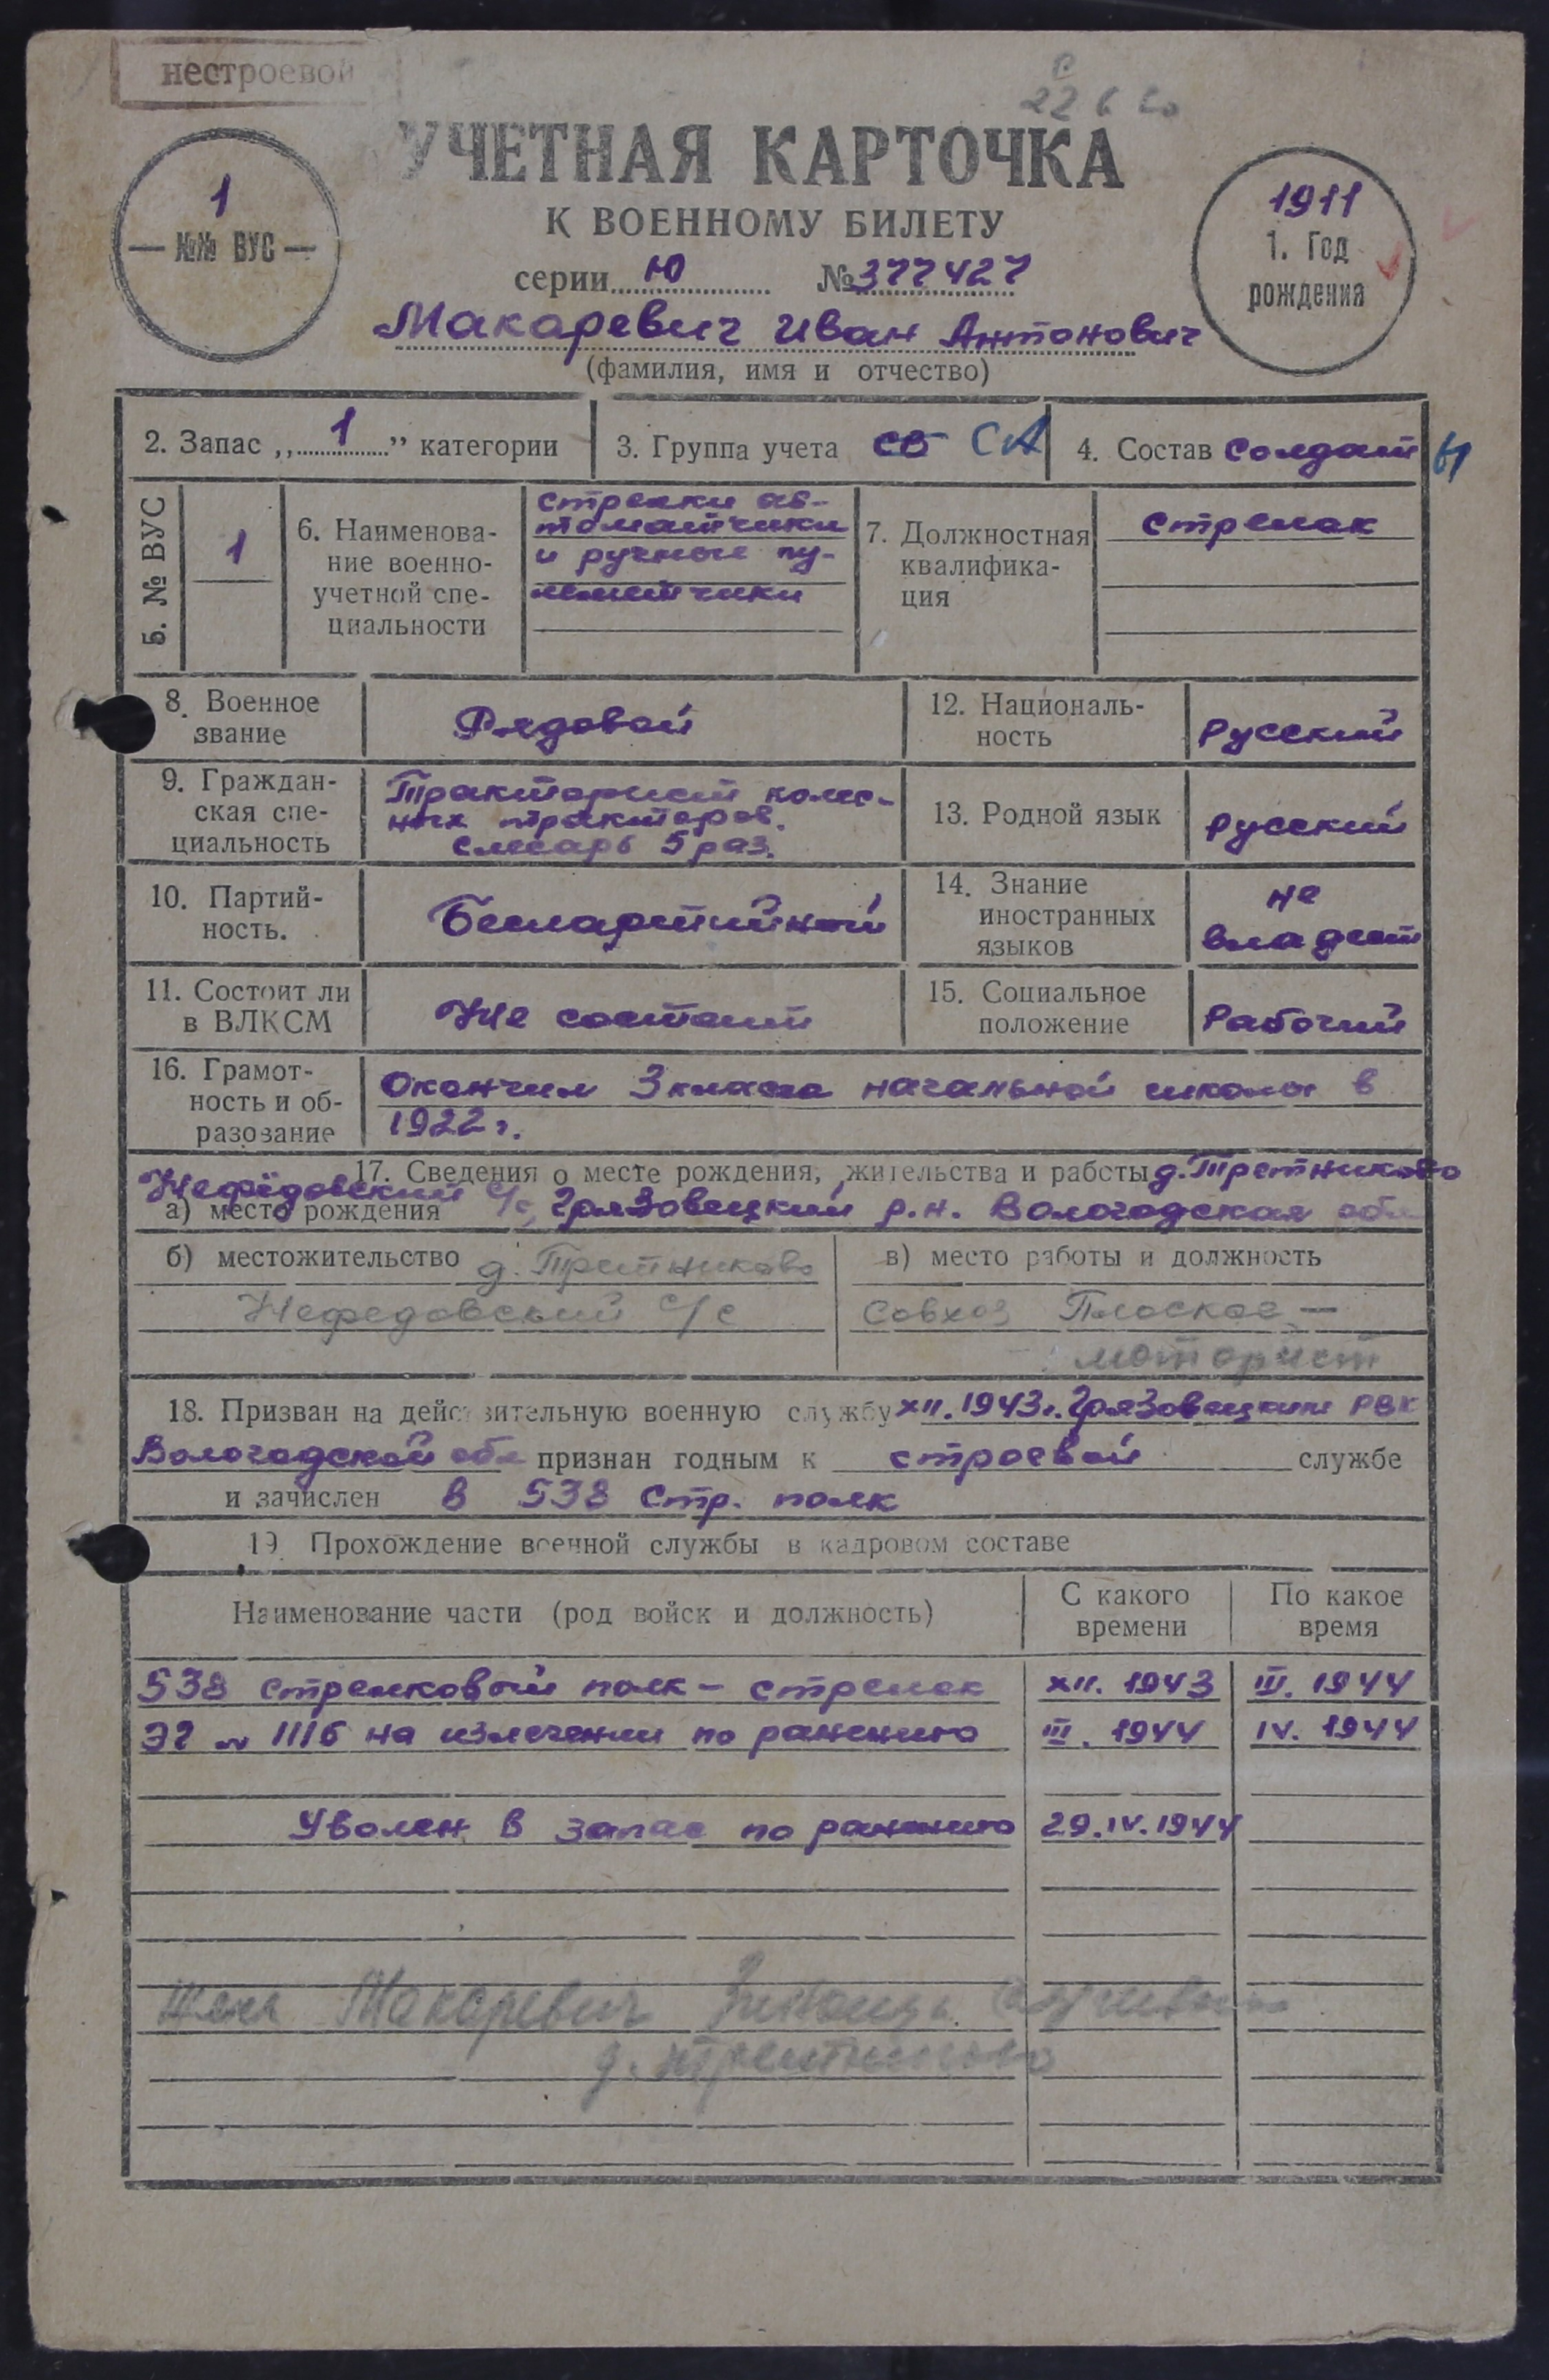 нестроевой
22 6
УЧЕТНАЯ КАРТОЧКА
К ВОЕННОМУ БИЛЕТУ
1
№№ ВУС
1911
1. Год
рождения
серии Ю №377427
Макаревич Иван Антонович
(фамилия, имя и отчество)
2. Запас „1” категории
3. Группа учета СА
4. Состав Солдаты
5. № ВУС
1
6. Наименова-
ние военно-
учетной спе-
циальности
стрелки ав-
томатчики
и ручные пу-
леметчики
7. Должностная
квалифика-
ция
стрелок
8. Военное
звание
Рядовой
12. Националь-
ность
Русский
9. Граждан-
ская спе-
циальность
Тракторист колес-
ных тракторов.
слесарь 5 раз.
13. Родной язык
Русский
10. Партий-
ность.
Беспартийный
14. Знание
иностранных
языков
не
владеет
11. Состоит ли
в ВЛКСМ
Не состоит
15. Социальное
положение
Рабочий
16. Грамот-
ность и об-
разование
Окончил 3 класса начальной школы в
1922 г.
17. Сведения о месте рождения, жительства и работы д. Третниково
Нефёдовский с/с, Грязовецкий р.н. Вологодская обл
а) место рождения
б) местожительство д. Третниково
Нефедовский с/с
в) место работы и должность
Совхоз Плоское —
моторист
18. Призван на действительную военную службу XII. 1943г. Грязовецким РВК
Вологодской обл признан годным к строевой службе
и зачислен в 538 Стр. полк
19 Прохождение военной службы в кадровом составе
Наименование части (род войск и должность)
С какого
времени
По какое
время
538 стрелковый полк – стрелок XII. 1943 III. 1944
ЭГ № 1116 на излечении по ранению III. 1944 IV. 1944
Уволен в запас по ранению 29.IV.1944
Жена Макаревич
д. Третниково